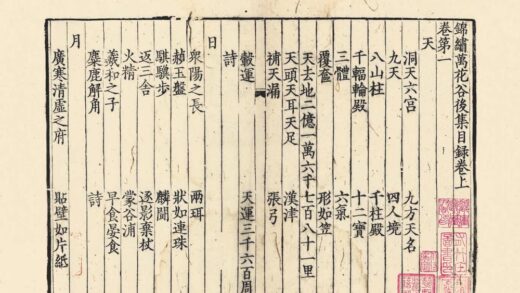 錦繡萬花谷後集目録卷上
卷第一
天
洞天六宫 九方天名
九天 四人境
八山柱 千柱殿
千輻輪殿 十二寶
三體 六氣
覆奩 形如笠
天去地二億一萬六千七百八十一里
天頭天耳天足 漢津
補天漏 張弓
轂運 天運三千六百周
詩
日
衆陽之長 兩珥
赫玉盤 狀如連珠
騏驥步 麟鬭
返三舍 逐影棄杖
火精 蒙谷浦
羲和之子 早食晏食
麋鹿解角 詩
月
廣寒清虛之府 貼壁如片紙